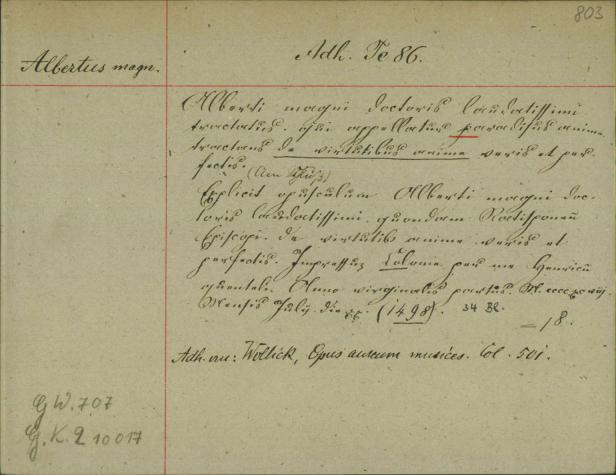 803
Albertus magn.
Adh. Te 86.
Alberti magni doctoris laudatissimi
tractatus. qui appellatur paradisus anime
tractans de virtutibus anime veris et per-
fectis. (Am Schluß)
Explicit opusculum Alberti magni doc-
toris laudatissimi quondam Ratisponen̄
Episcopi. De virtutib anime veris et
perfectis. Impressuz Colonie per me Henricū
quentele. Anno virginalis partus. M. cccc xcviij
Mensis Julij. die xx. (1498). 34 Bl.
= 18.
Adh. an: Wollick, Opus aureum musices. Col. 501.
G W. 707
G. K. 2 10017